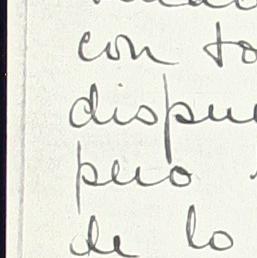 con to
dispue
pero
de lo